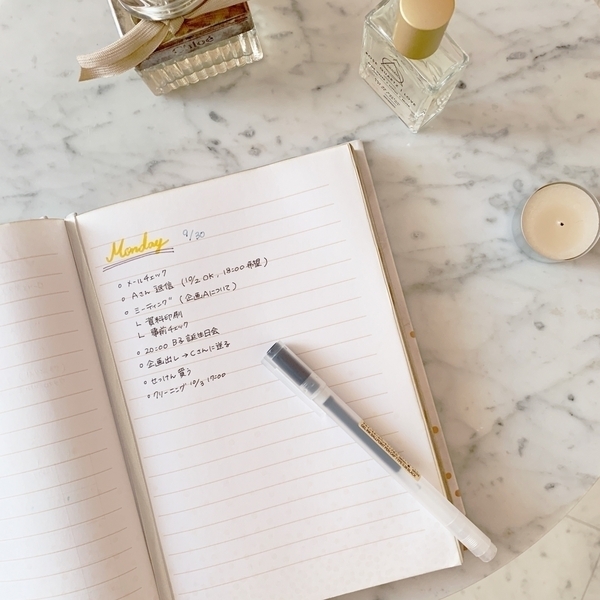 Chloé
Monday 9/30
○ メールチェック
○ Aさん 返信 (10/2 OK, 18:00 希望)
○ ミーティング (企画Aについて)
└ 資料印刷
└ 事前チェック
○ 20:00 B子 誕生日会
○ 企画出し → Cさんに送る
○ せっけん 買う
○ クリーニング 10/3 17:00